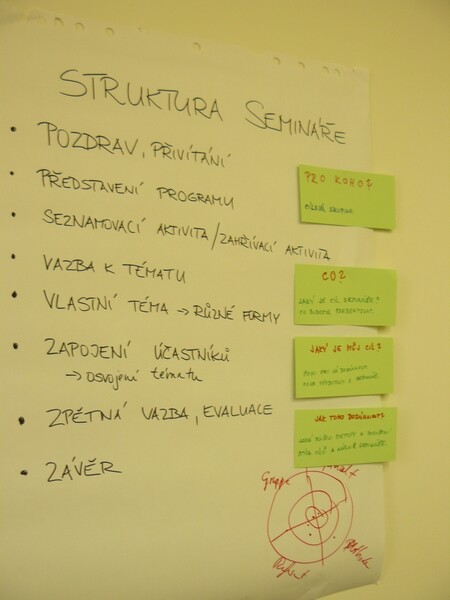 STRUKTURA SEMINÁŘE
• POZDRAV, PŘIVÍTÁNÍ
• PŘEDSTAVENÍ PROGRAMU
• SEZNAMOVACÍ AKTIVITA/ZAHŘÍVACÍ AKTIVITA
• VAZBA K TÉMATU
• VLASTNÍ TÉMA → RŮZNÉ FORMY
• ZAPOJENÍ ÚČASTNÍKŮ
→ OSVOJENÍ tématu
• ZPĚTNÁ VAZBA, EVALUACE
• ZÁVĚR
PRO KOHO?
CÍLOVÁ SKUPINA
CO?
JAKÝ JE CÍL SEMINÁŘE?
JAKÝ JE MŮJ CÍL?
JAK TOHO DOSÁHNOUT?
Gruppe